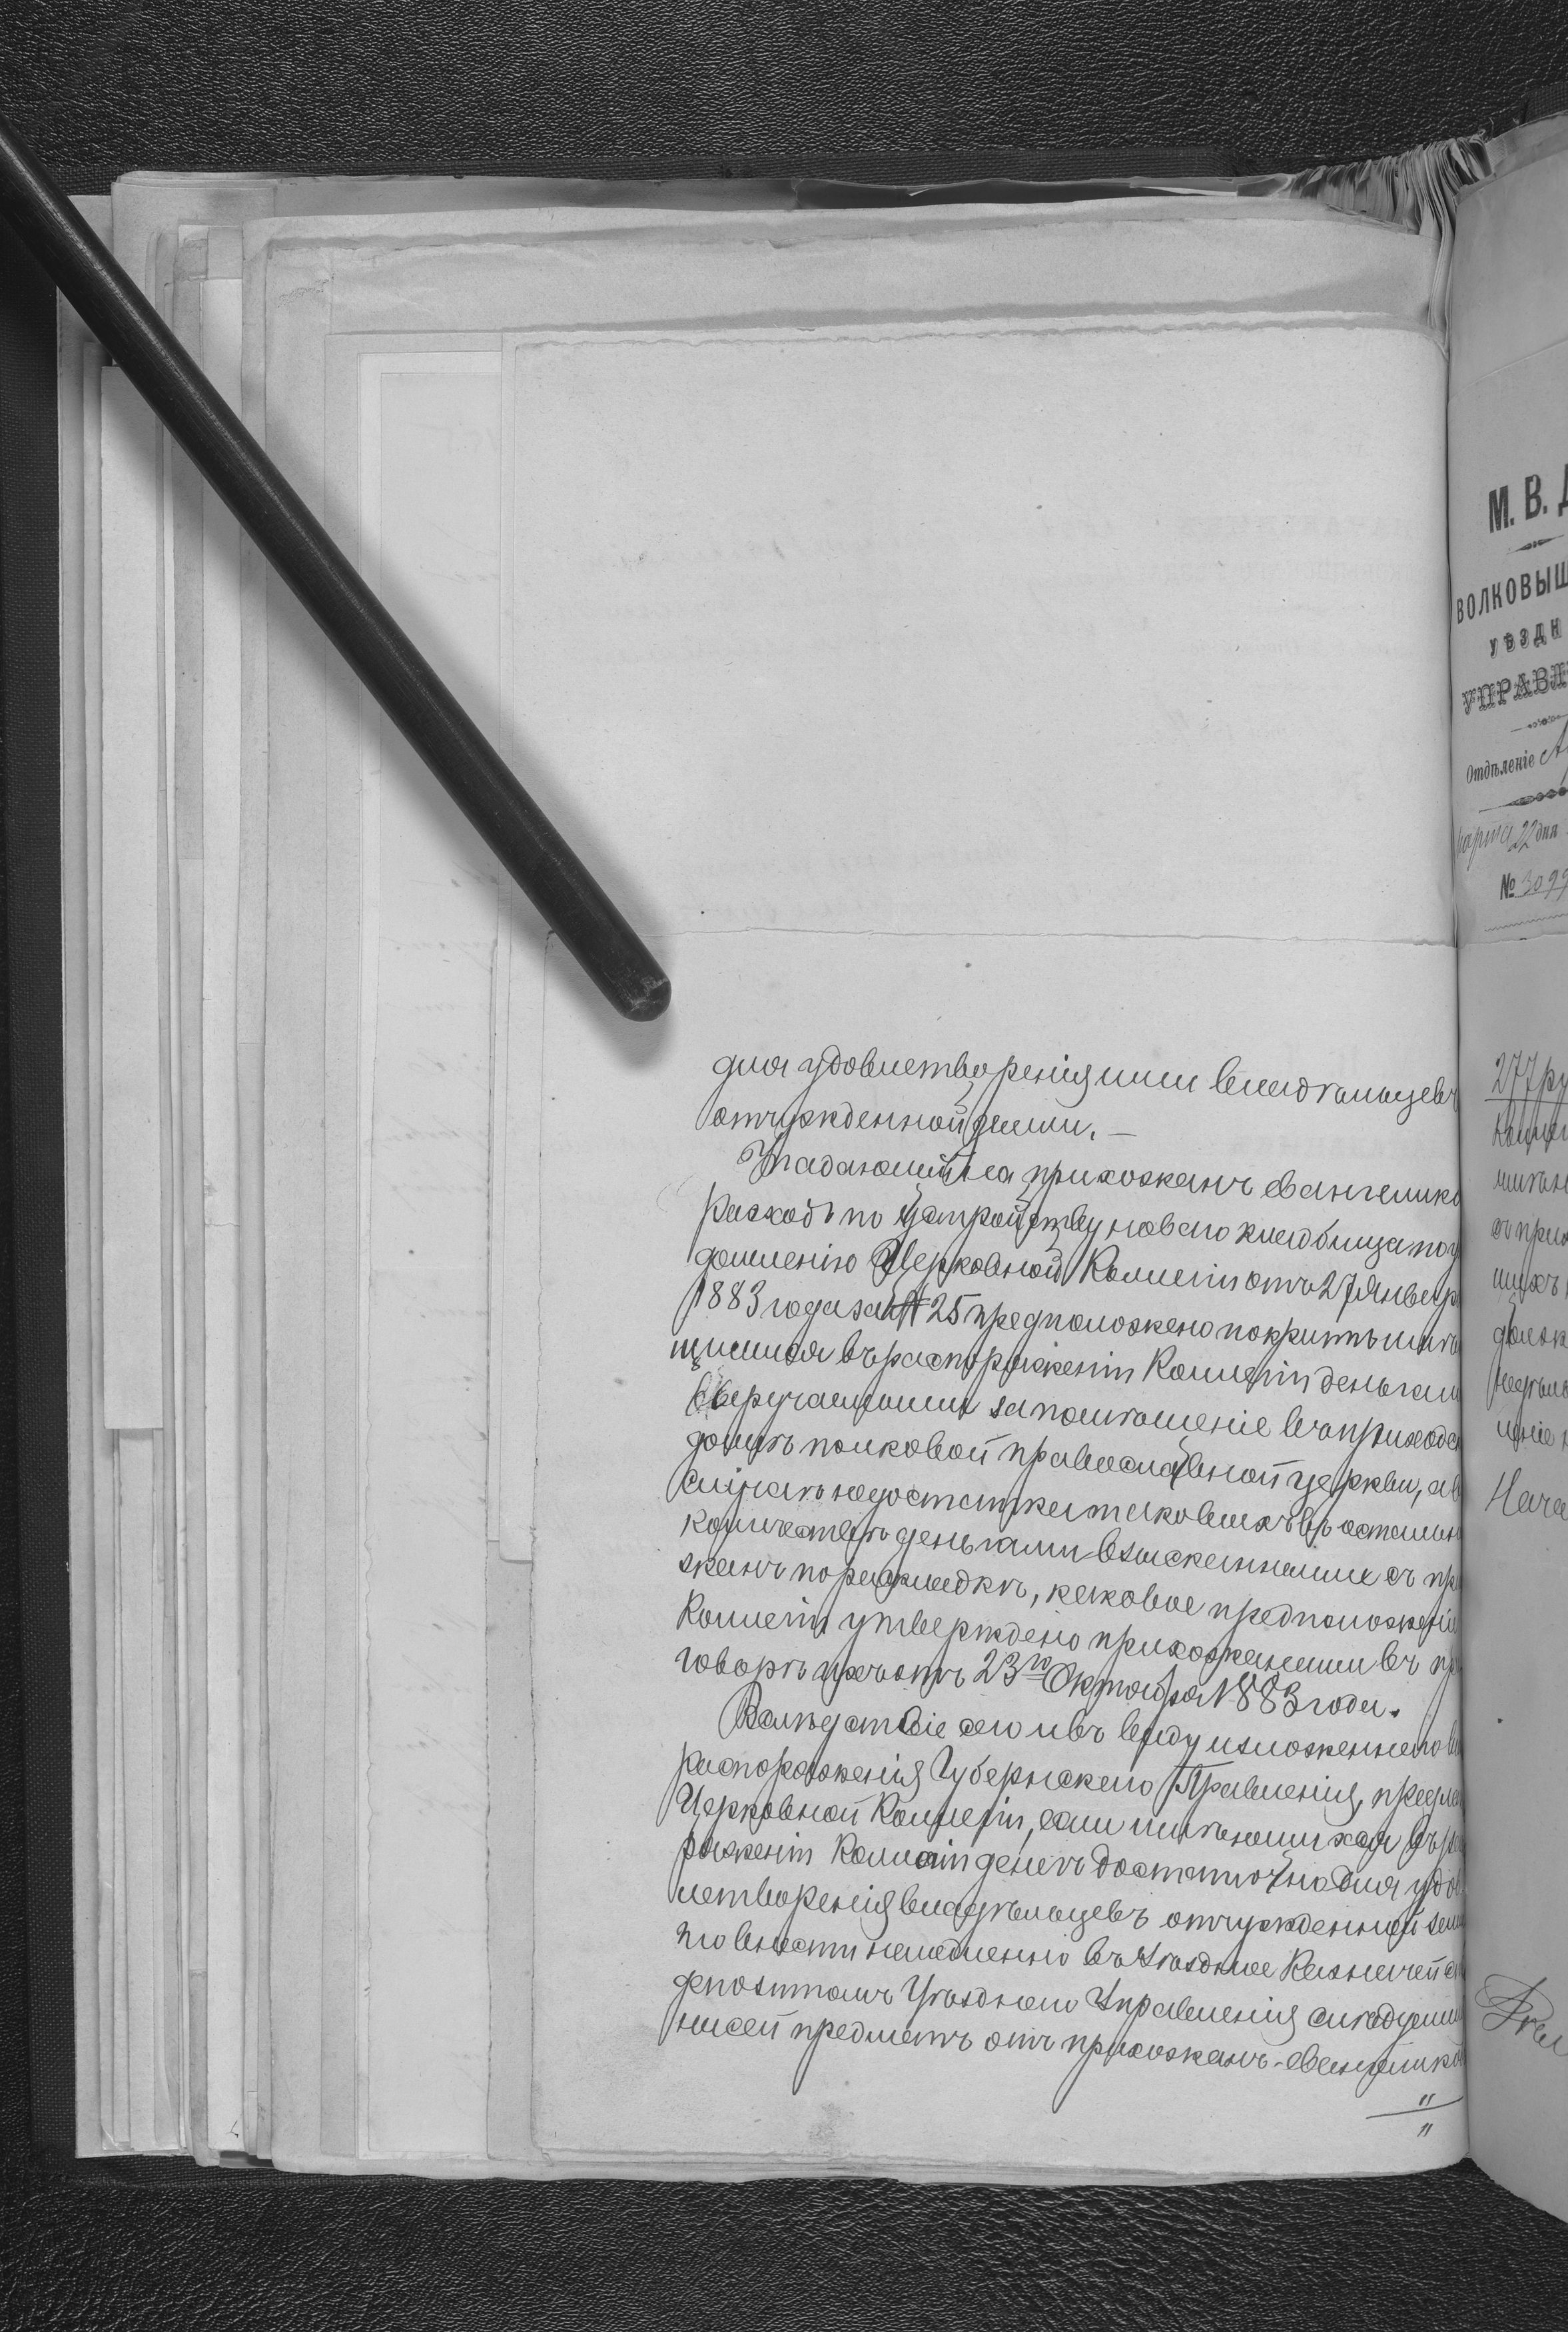 для удовлетворенія ими владѣльцевъ
отчужденной земли. —
Упадающій на прихожанъ евангелико
расходъ по устройству новаго кладбища по у
домленію Церковной Коллегіи отъ 27 Январ
1883 года за № 25 предположено покрыть имѣю
щимися въ распоряженіи Коллегіи деньгами
выручаемыми за помѣщеніе въ приходск
домѣ полковой православной церкви, а в
случаѣ недостатка таковыхъ въ остальн
количествѣ деньгами взысканными съ при
жанъ по раскладкѣ, каковое предположеніе
Коллегіи утверждено прихожанами въ при
говорѣ ихъ отъ 23го Октября 1883 года.
Вслѣдствіе сего и въ виду изложеннаго
распоряженія Губернскаго Правленія, предла
Церковной Коллегіи, если имѣющихся въ распо
ряженіи Коллегіи денегъ достаточно для удов
летворенія владѣльцевъ отчужденной земли
то внести немедленно въ Уѣздное Казначейс
депозитомъ Уѣзднаго Управленія слѣдуемы
на сей предметъ отъ прихожанъ-евангелико
"
"
М. В. Д
ВОЛКОВЫШ
УѢЗДН
УПРАВЛ
Отдѣленіе А
марта 22 дня
№ 3099
277 ру
Колле
съ прих
щихъ
долж
недѣль
Нача